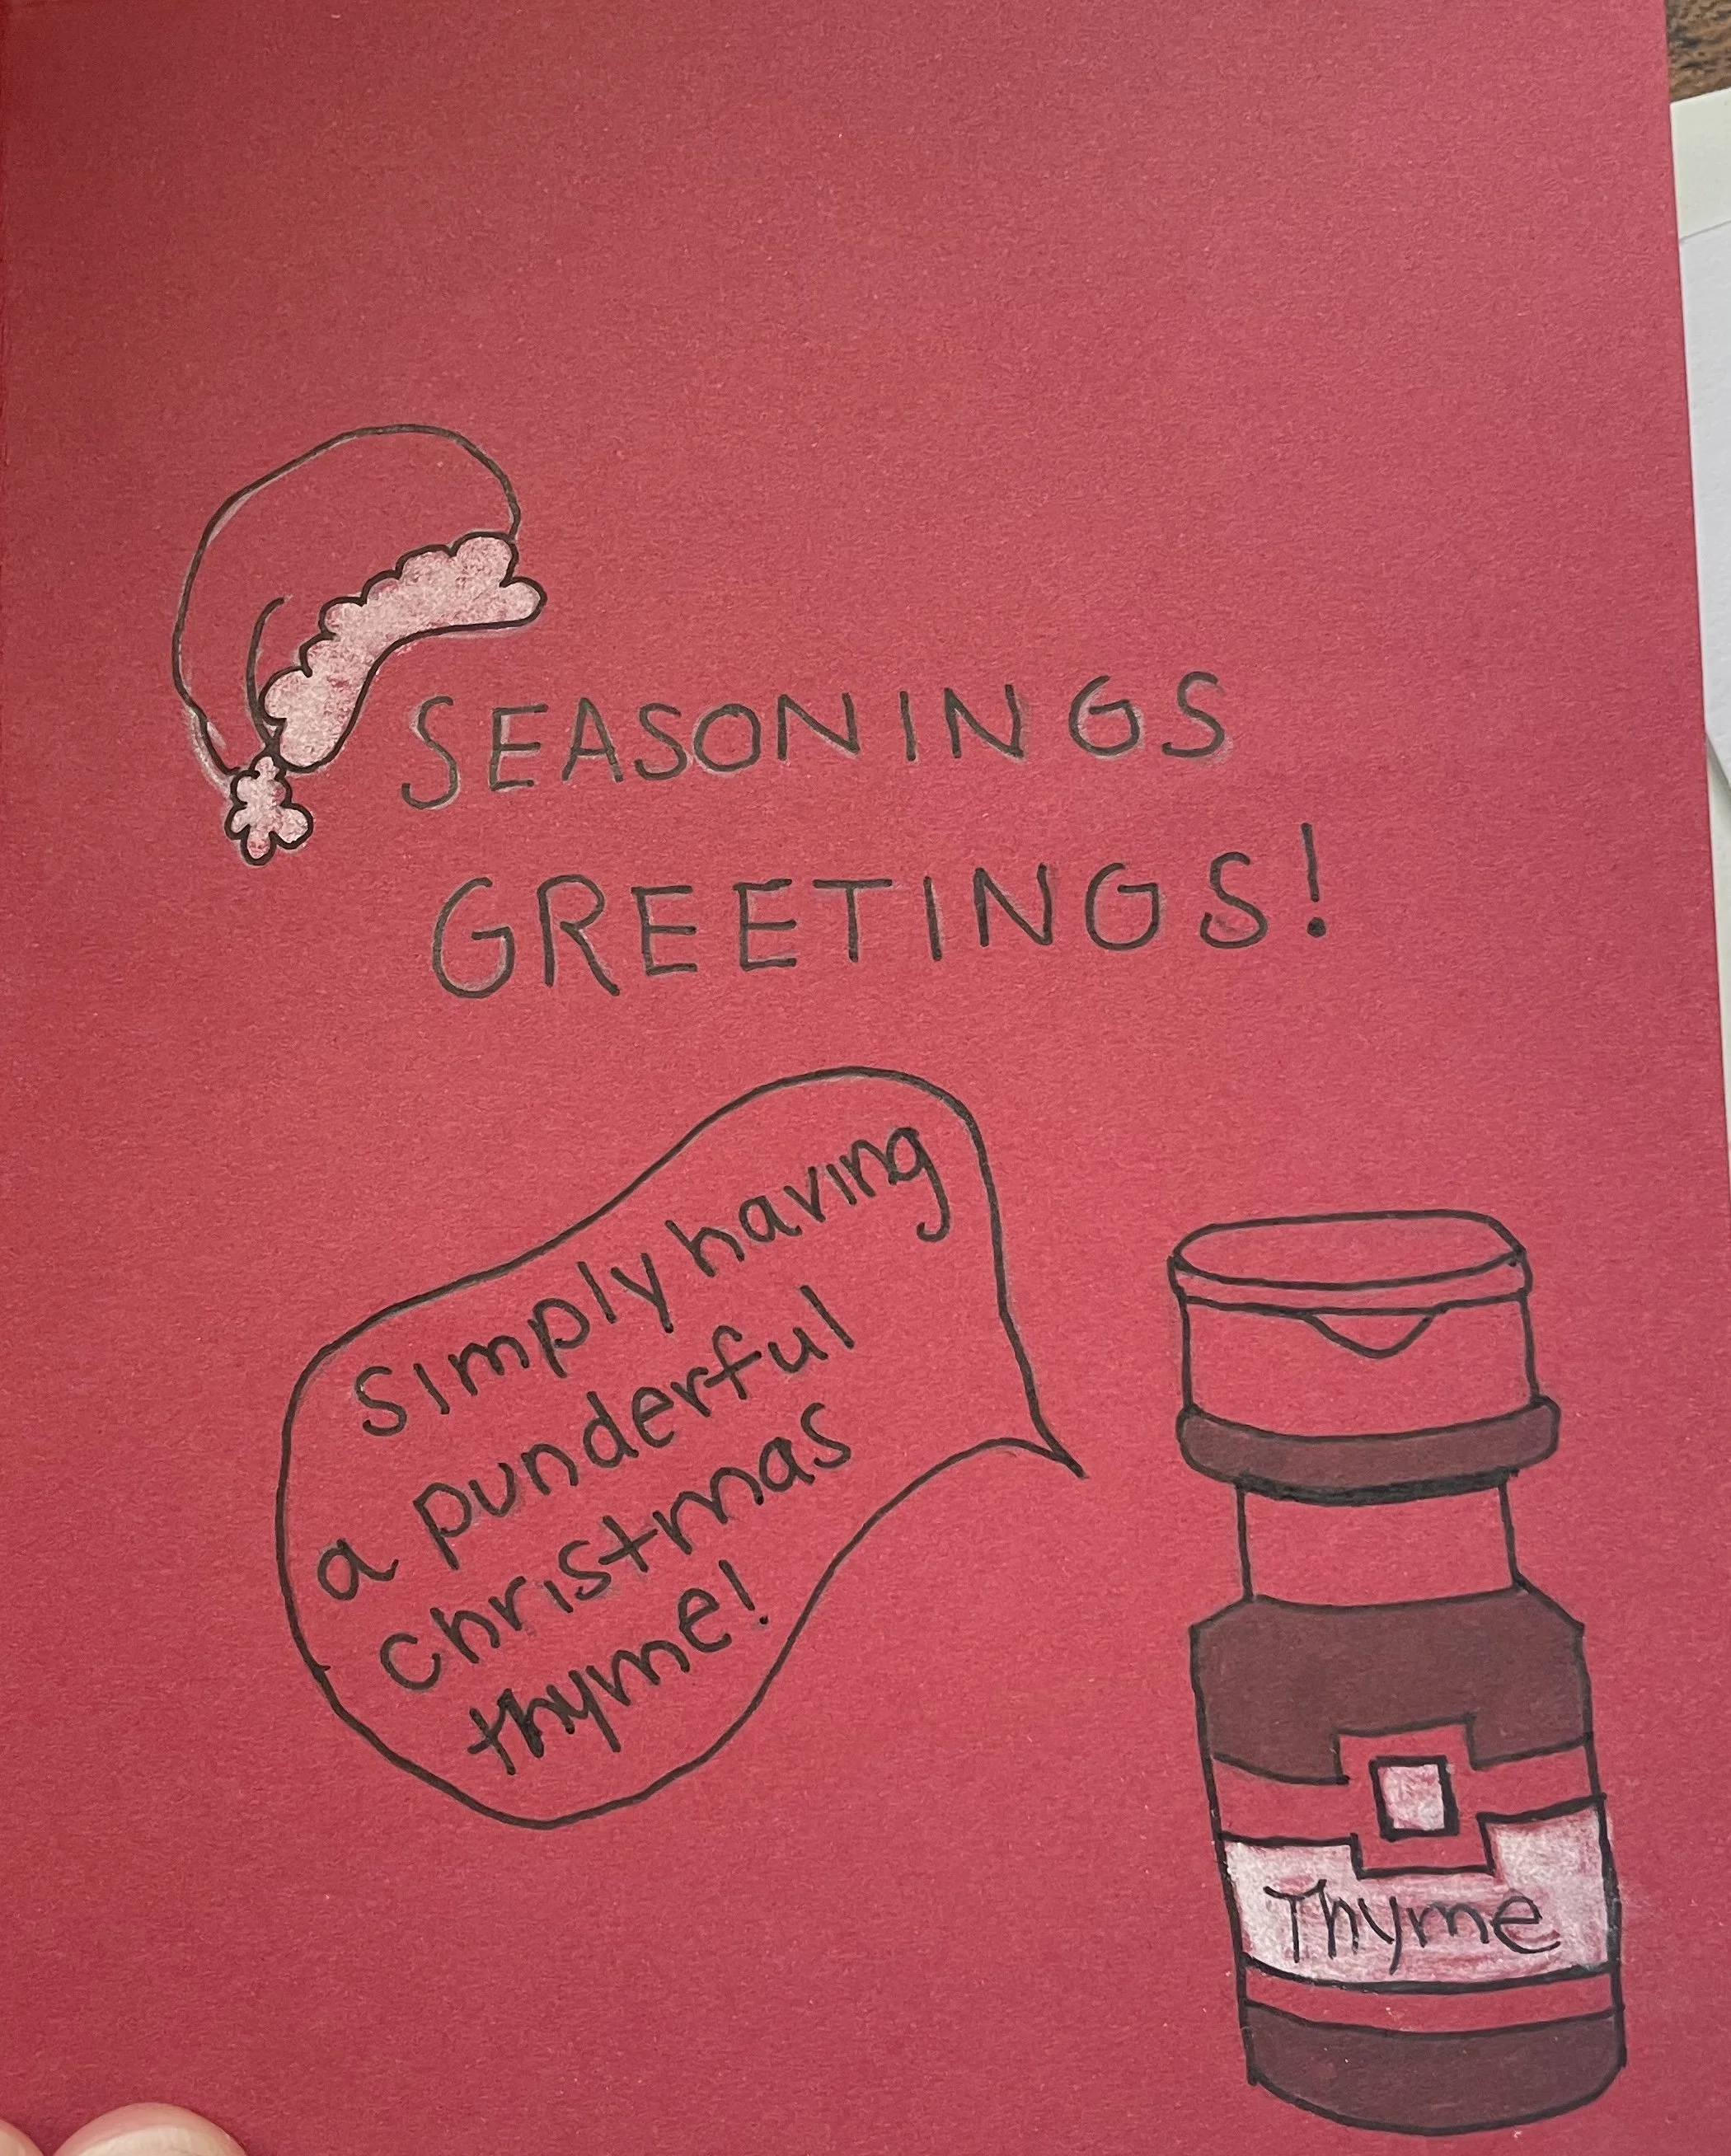 SEASONINGS
GREETINGS!
Simply having
a punderful
christmas
thyme!
Thyme